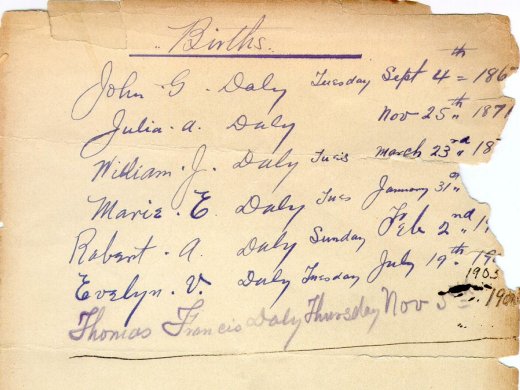 Births.
John. G. Daly Tuesday Sept 4th = 186
Julia. a. Daly Nov 25th " 1871
William. J. Daly Tues March 23rd " 18
Marie. E. Daly Tues January 31st "
Robert. A. Daly Sunday Feb 2nd " 1
Evelyn. V. Daly Tuesday July 19th " 19
1903
Thomas Francis Daly Thursday Nov 5 190